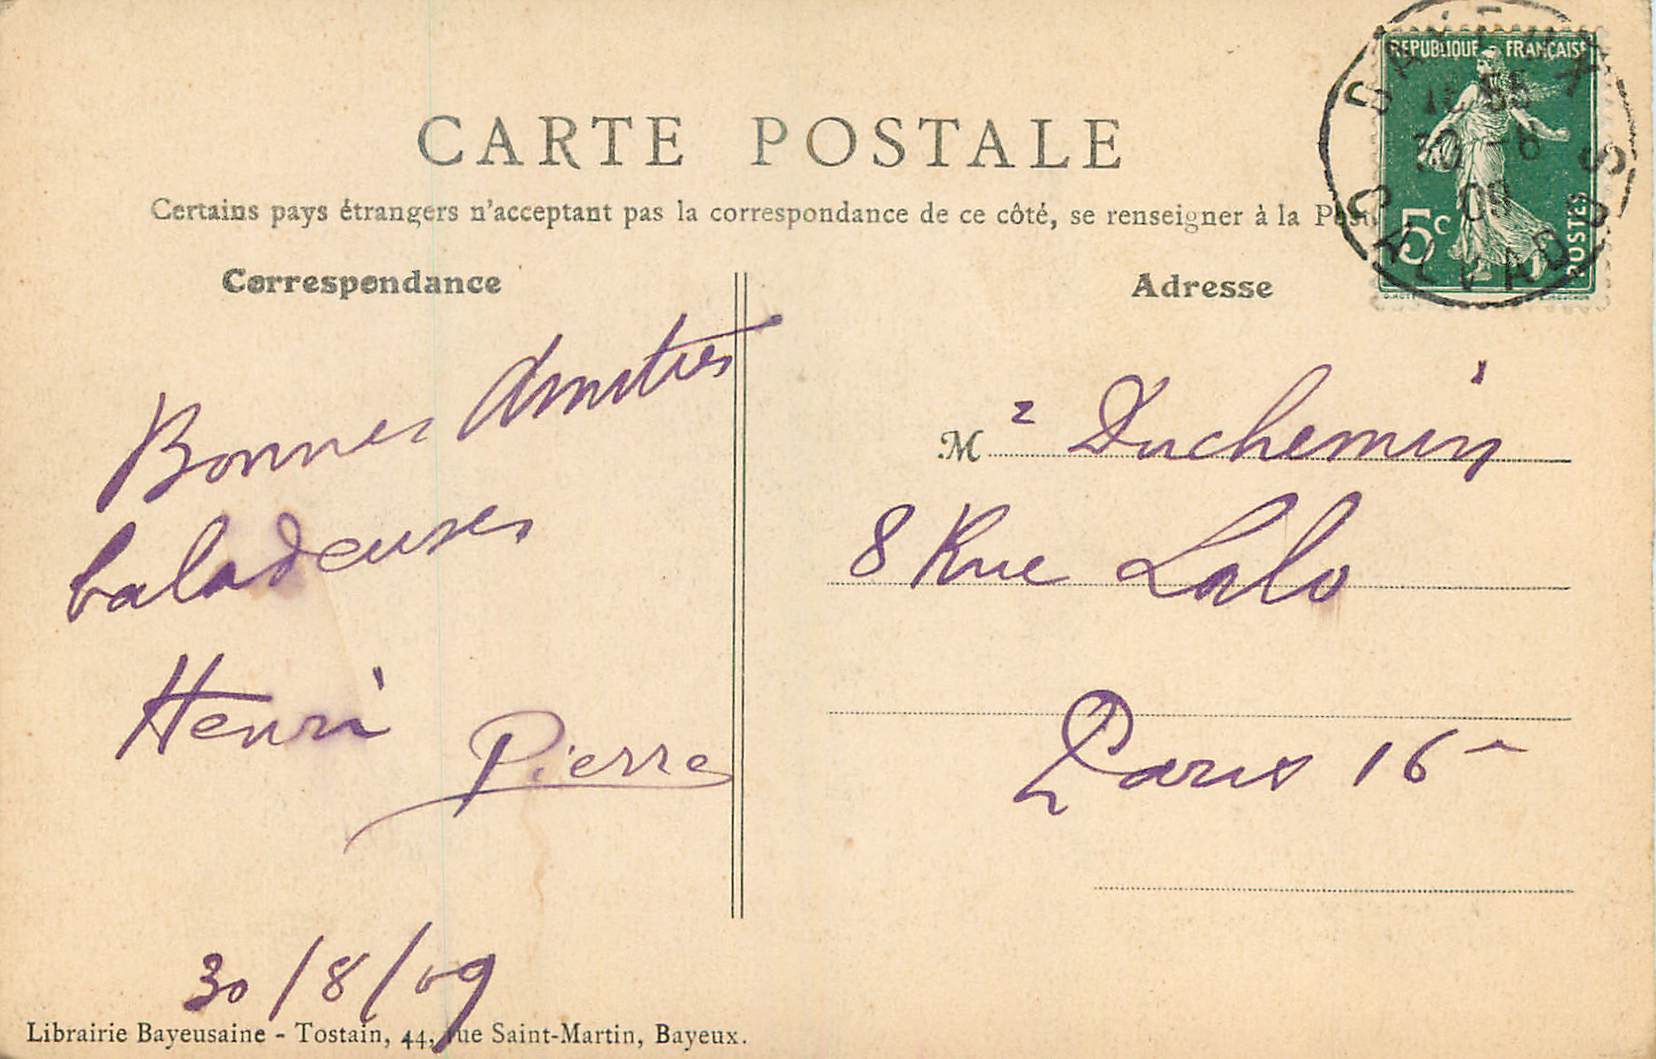 CARTE POSTALE
Certains pays étrangers n'acceptant pas la correspondance de ce côté, se renseigner à la Poste
Correspondance
Adresse
REPUBLIQUE FRANÇAISE
5c
POSTES
30 -8
09
CALVADOS
Bonnes Amitiés
baladeuses
Henri
Pierre
30/8/09
Mr Duchemin
8 Rue Lalo
Paris 16
Librairie Bayeusaine - Tostain, 44, rue Saint-Martin, Bayeux.